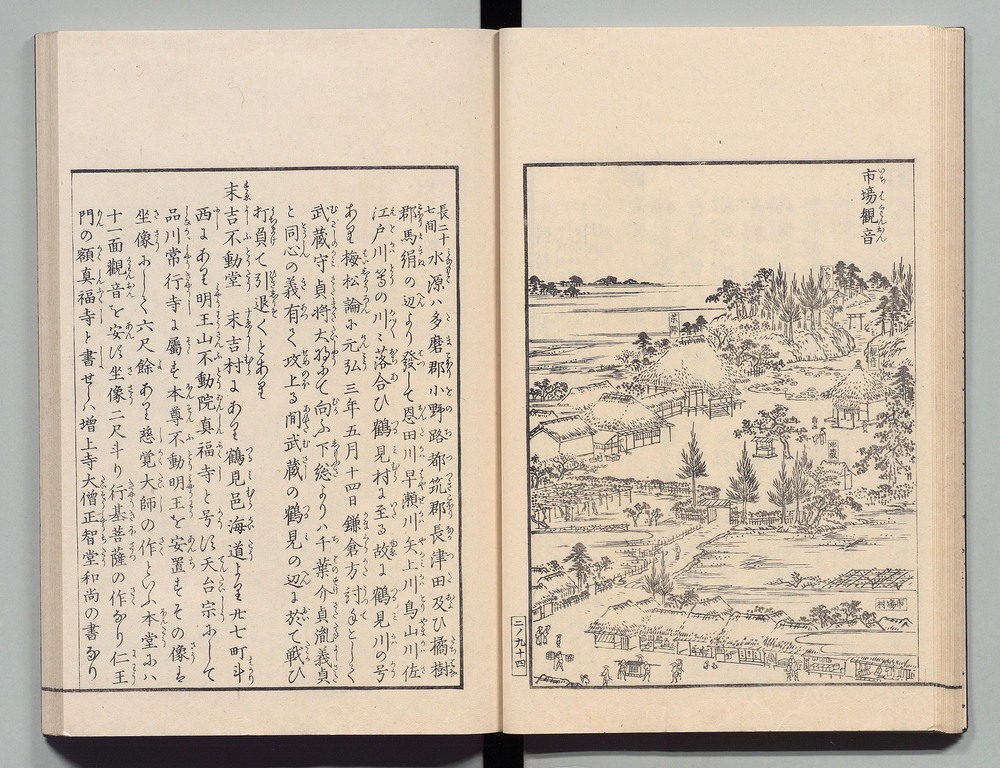 市場観音
薬師
観音
地蔵
市場村
二ノ九十四
長二十七間水源ハ多磨郡小野路都筑郡長津田及ひ橘樹
郡馬絹の辺より發して恩田川早瀬川矢上川鳥山川佐
江戸川等の川々落合ひ鶴見村に至る故に鶴見川の号
あり梅松論に元弘三年五月十四日鎌倉方討手として
武蔵守貞将大将にて向ふ下総よりハ千葉介貞胤義貞
と同心の義有て攻上る間武蔵の鶴見の辺に於て戦ひ
打負て引退くとあり
末吉不動堂 末吉村にあり鶴見邑海道より廿七町斗
西にあり明王山不動院真福寺と号す天台宗にして
品川常行寺に屬す本尊不動明王を安置すその像は
坐像にして六尺餘あり慈覚大師の作といふ本堂にハ
十一面觀音を安す坐像二尺斗り行基菩薩の作なり仁王
門の額真福寺と書せしハ増上寺大僧正智堂和尚の書なり